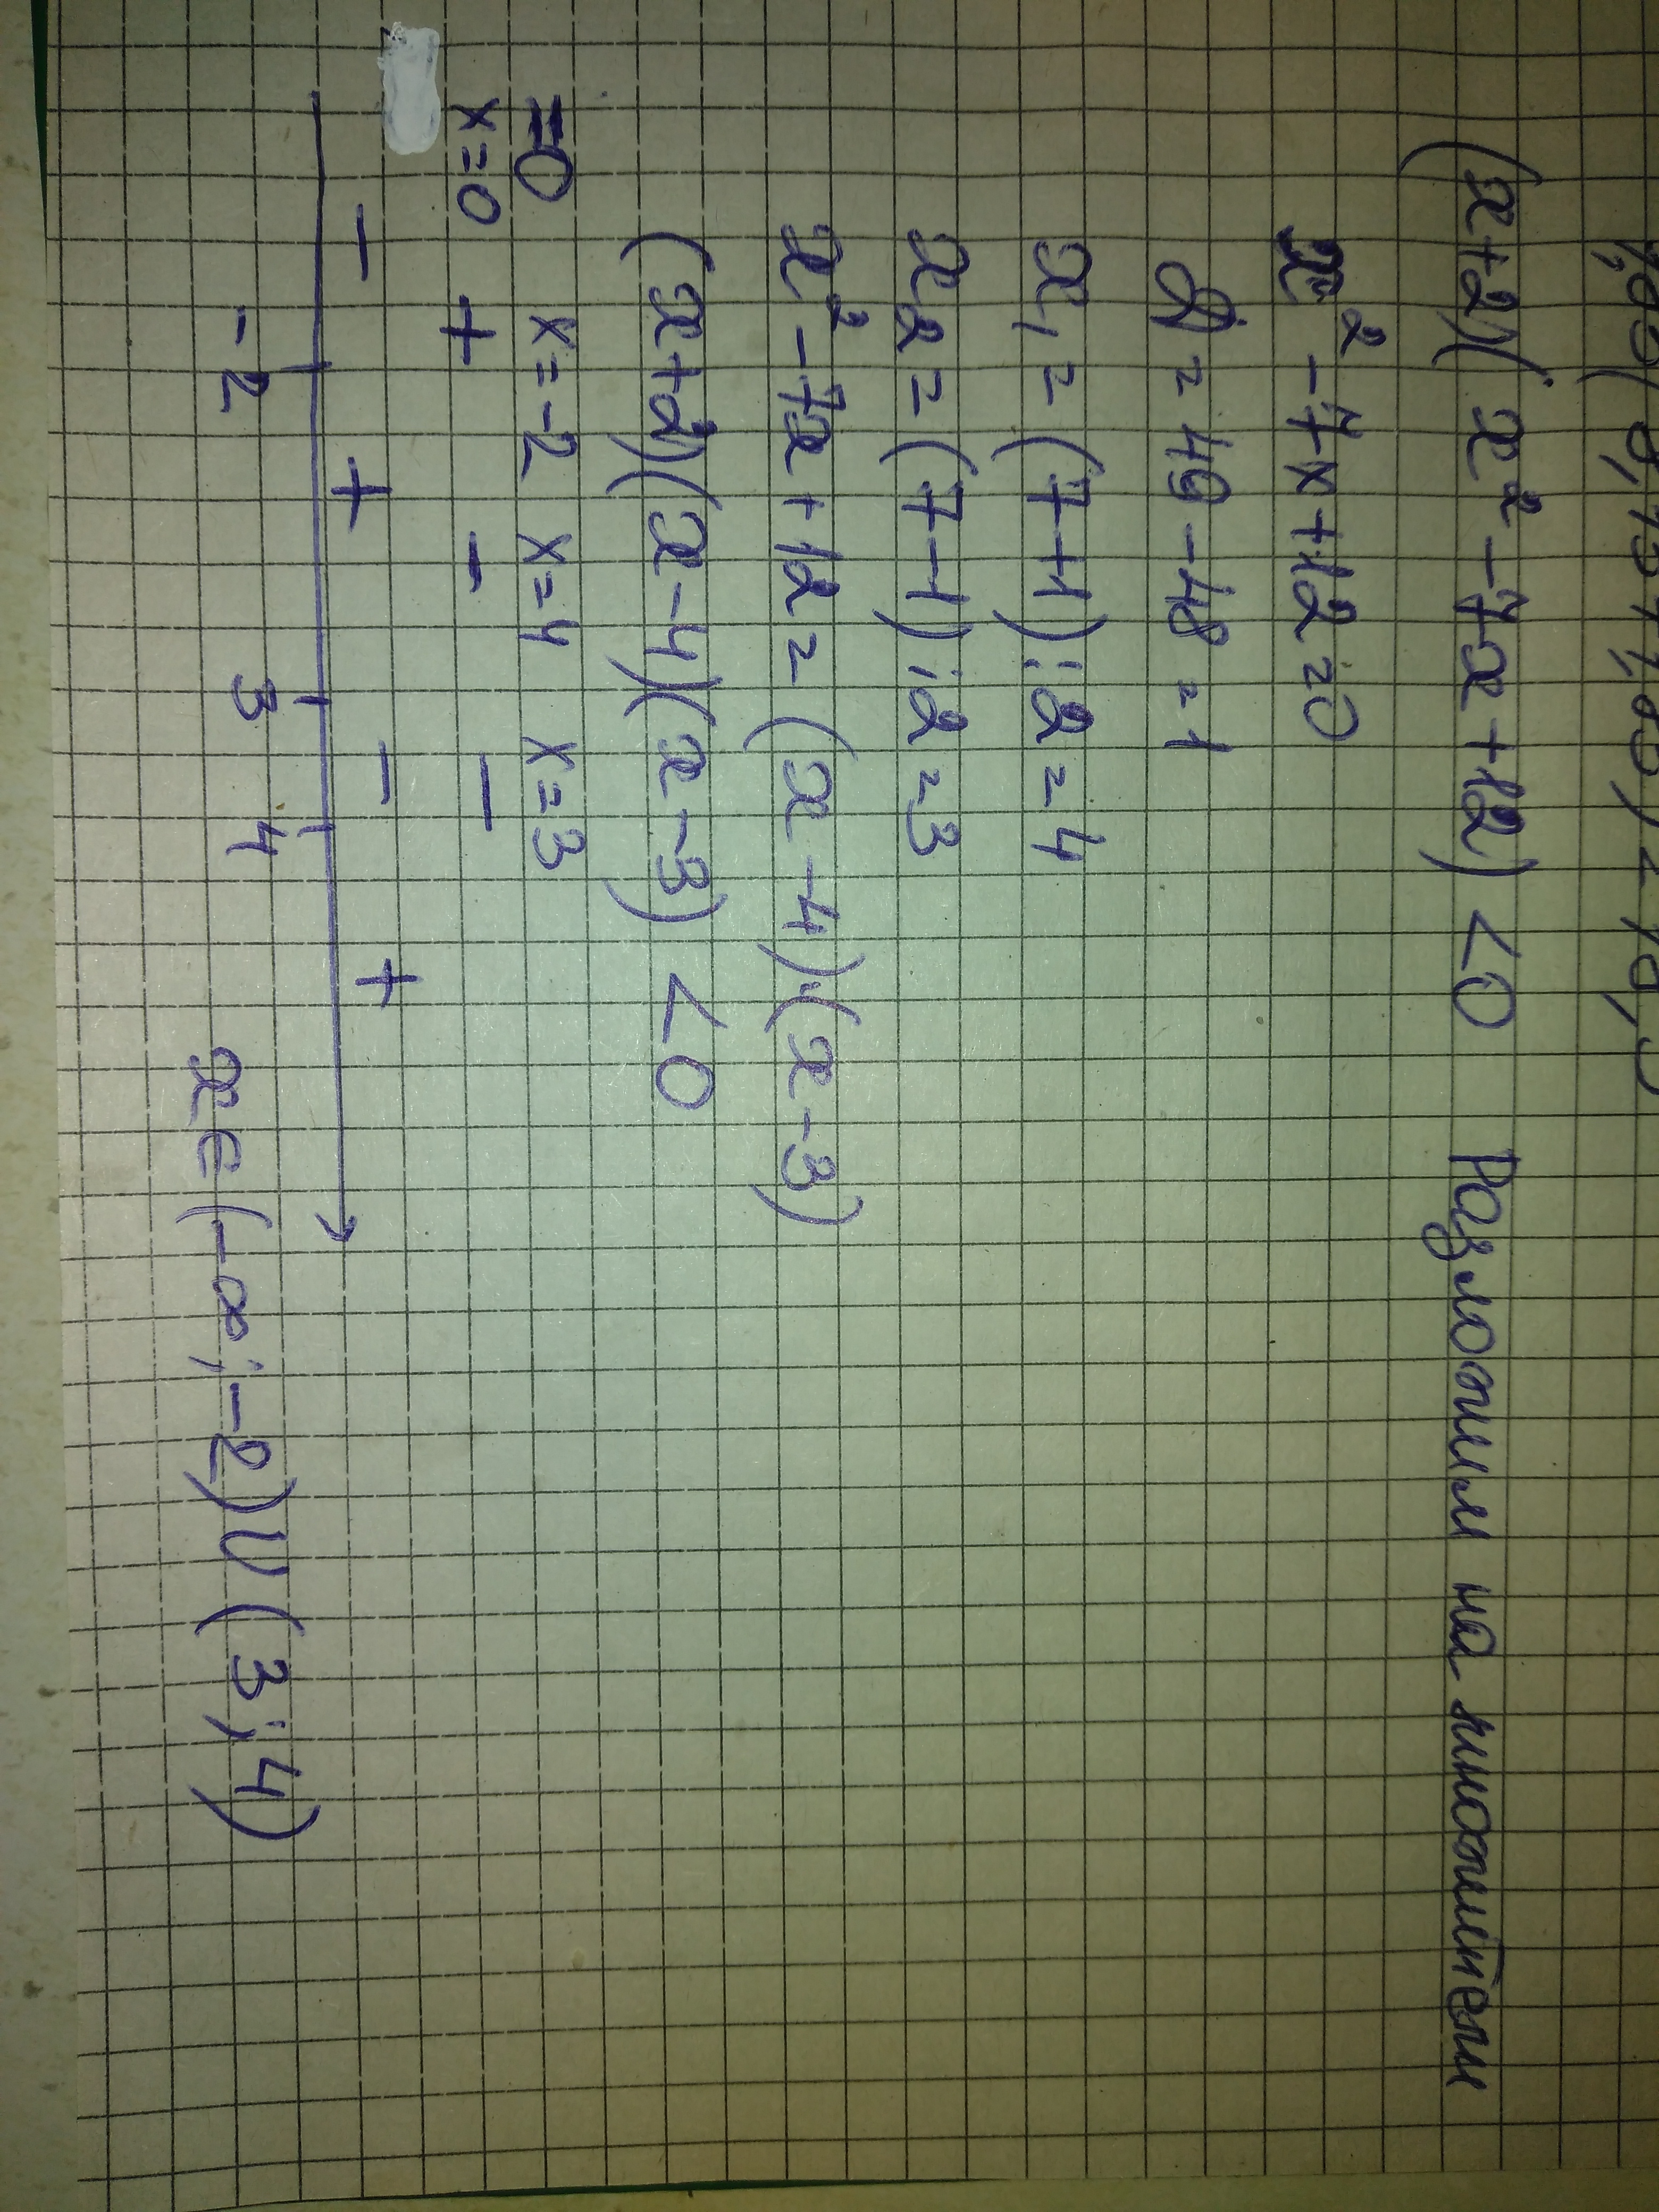 (x+2)(x²-7x+12) <0 Разложим на множители
x²-7x+12=0
D=49-48=1
x₁=(7+1):2=4
x₂=(7-1):2=3
x²-7x+12=(x-4)·(x-3)
(x+2)(x-4)(x-3) <0
=0 x=-2 x=4 x=3
x=0 + - -
- + - +
-2 3 4
x∈(-∞;-2)∪(3;4)